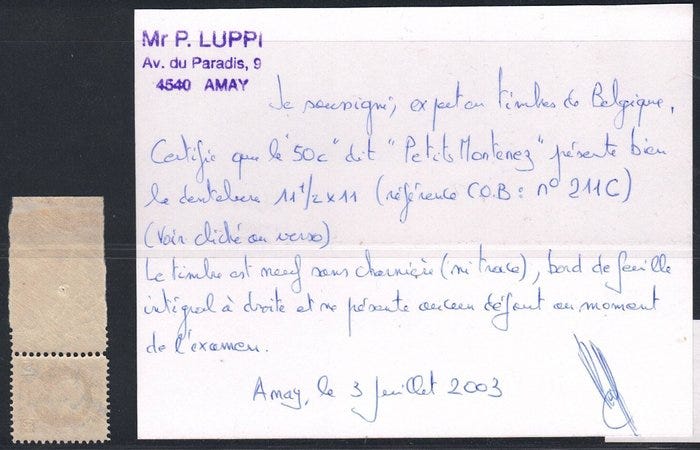 Mr P. LUPPI
Av. du Paradis, 9
4540 AMAY
Je soussigné, expert en timbres de Belgique,
Certifie que le "50c" dit "Petits Montenez" présente bien
la dentelure 11 1/2 x 11 (référence C.O.B : n° 211C)
(Voir cliché au verso)
Le timbre est neuf sans charnière (ni trace), bord de feuille
intégral à droite et ne présente aucun défaut au moment
de l'examen.
Amay, le 3 juillet 2003